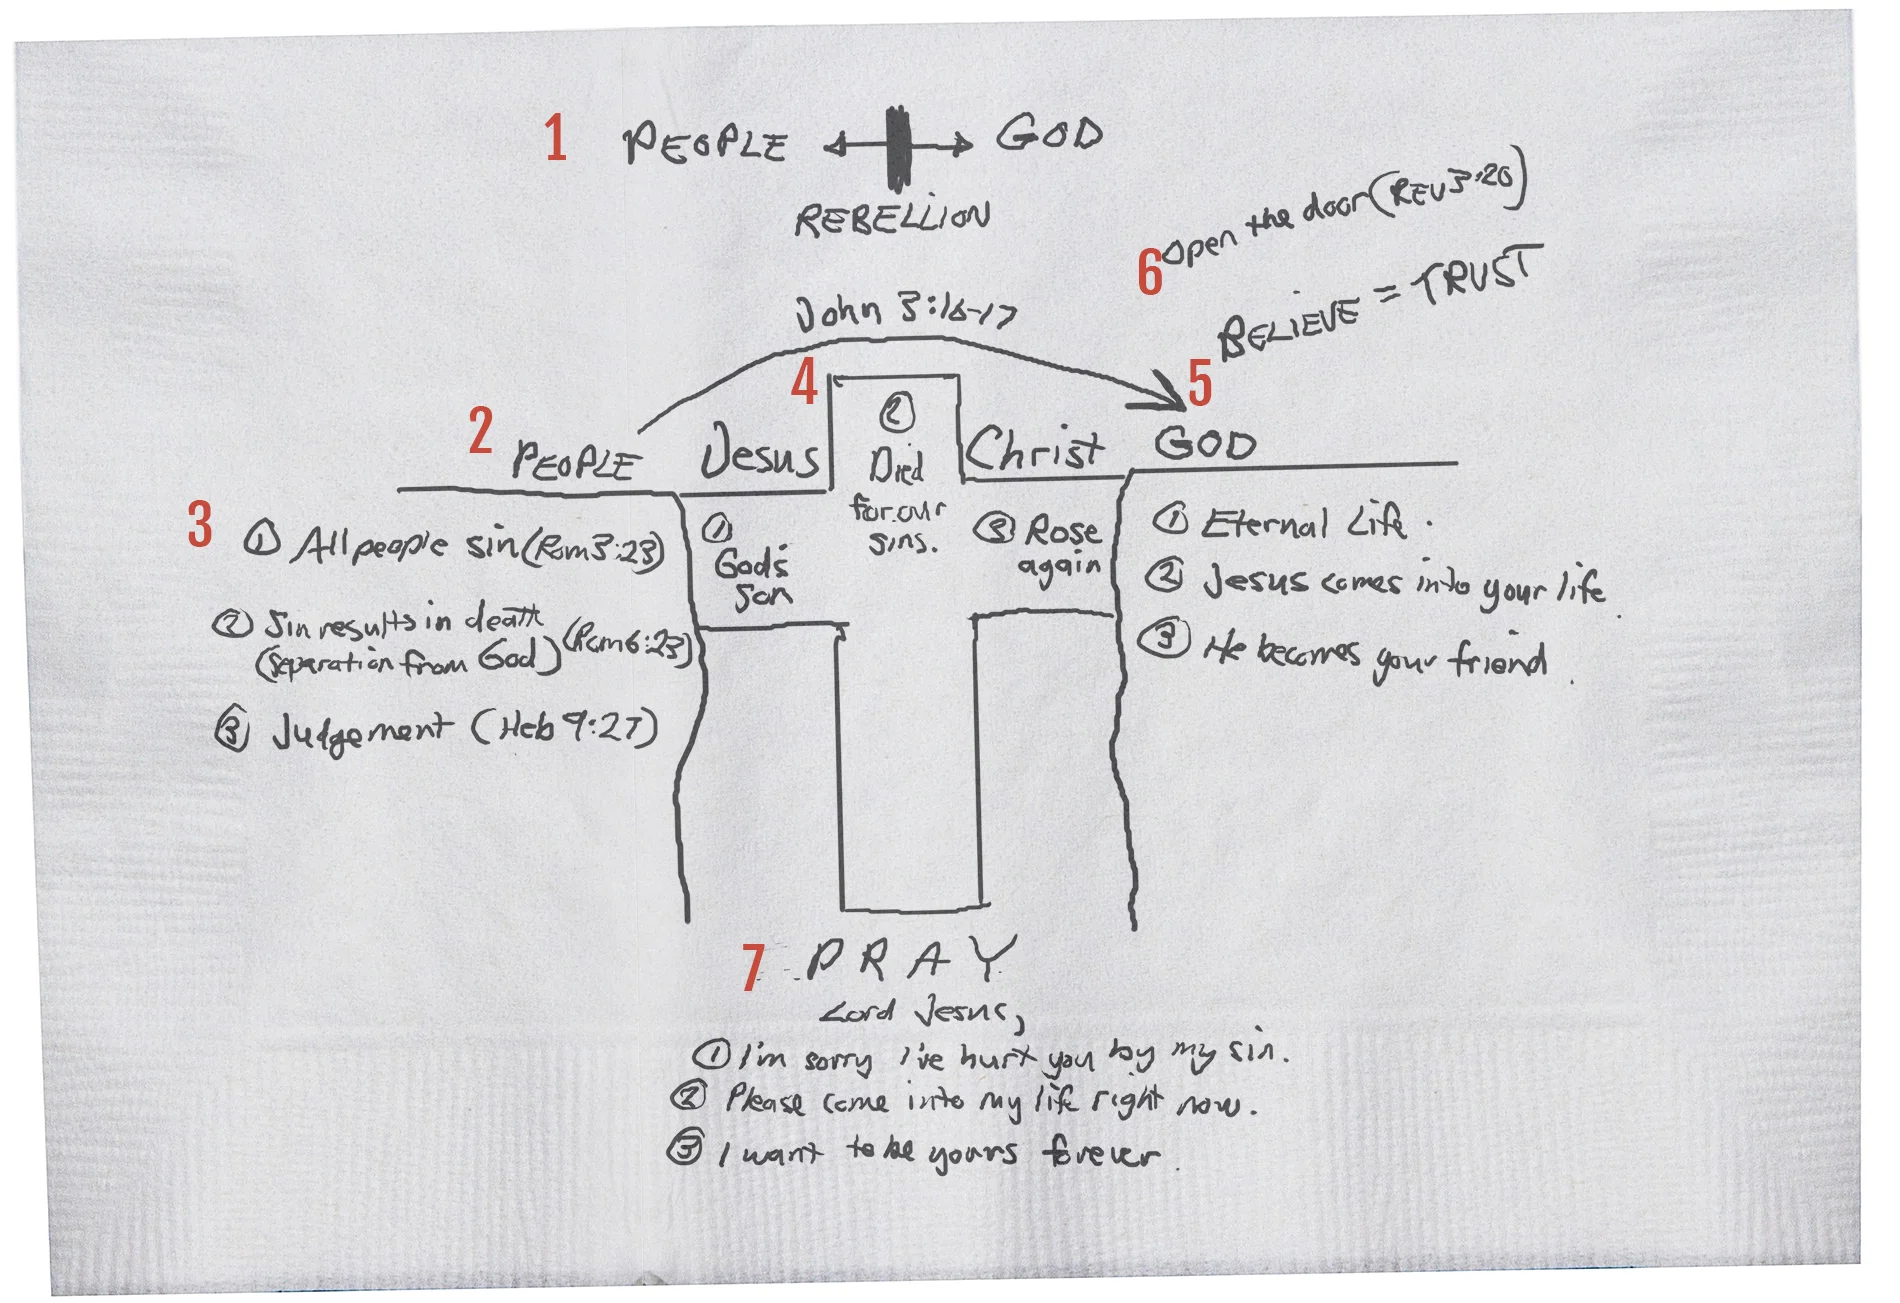 1 PEOPLE GOD
REBELLION
6 Open the door (REV 3:20)
BELIEVE = TRUST
John 3:16-17
4
5
2 PEOPLE
Jesus
Christ
GOD
② Died
for our
sins.
3
① All people sin (Rom 3:23)
② Sin results in death
(separation from God) (Rom 6:23)
③ Judgement (Heb 9:27)
①
God's
Son
③ Rose
again
① Eternal Life.
② Jesus comes into your life.
③ He becomes your friend.
7 PRAY
Lord Jesus,
① I'm sorry I've hurt you by my sin.
② Please come into my life right now.
③ I want to be yours forever.